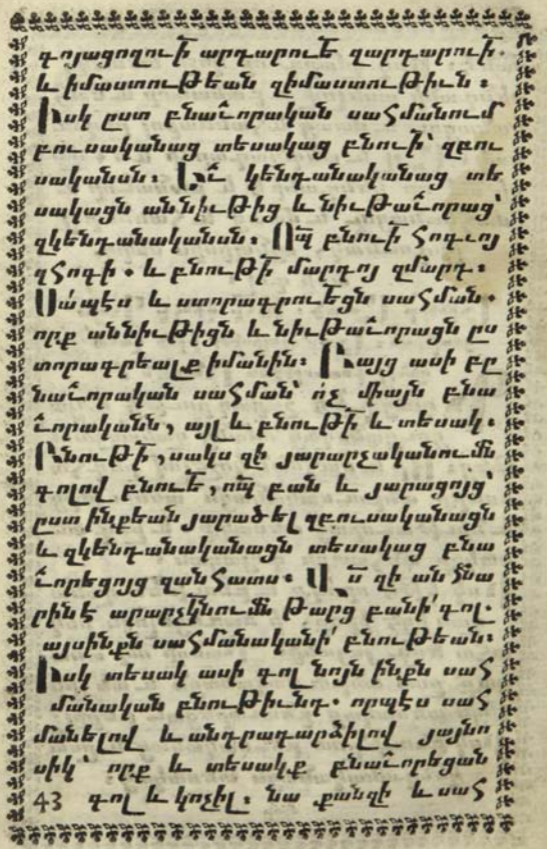 գոյացողութի արդարութե զարդարութի.
և իմաստութեան զիմաստութիւն :
Իսկ ըստ բնաւորական սահմանում
բուսականաց տեսակաց բնութի՝ զբու
սականսն: Եւ կենդանականաց տե
սակացն աննիւթից և նիւթաւորաց՝
զկենդանականսն: Որպ բնութի հոգւոյ
զհոգի . և բնութի մարդոյ զմարդ :
Սապէս և ստորագրութեցն սահման .
որք աննիւթիցն և նիւթաւորացն ըս
տորագրեալք իմանին: Բայց ասի բը
նաւորական սահման՝ ոչ միայն բնա
ւորականն, այլ և բնութի և տեսակ .
Բնութի, սակս զի յարարչականումն
գոլով բնութե, որպ բան և յարացոյց՝
ըստ ինքեան յարածել զբուսականացն
և զկենդանականացն տեսակաց բնա
ւորեցոյց զանհատս : Վս զի ան հնա
րին է արարչկնումն թարց բանի՛ գոլ.
այսինքն սահմանականի՛ բնութեան:
Իսկ տեսակ ասի գոլ նոյն ինքն սահ
մանական բնութիւնդ . որպէս սահ
մանելով և անդրադարձիլով յայնո
սիկ՝ որք և տեսակք բնաւորեցան
43 գոլ և կոչիլ : նա քանզի և սահ